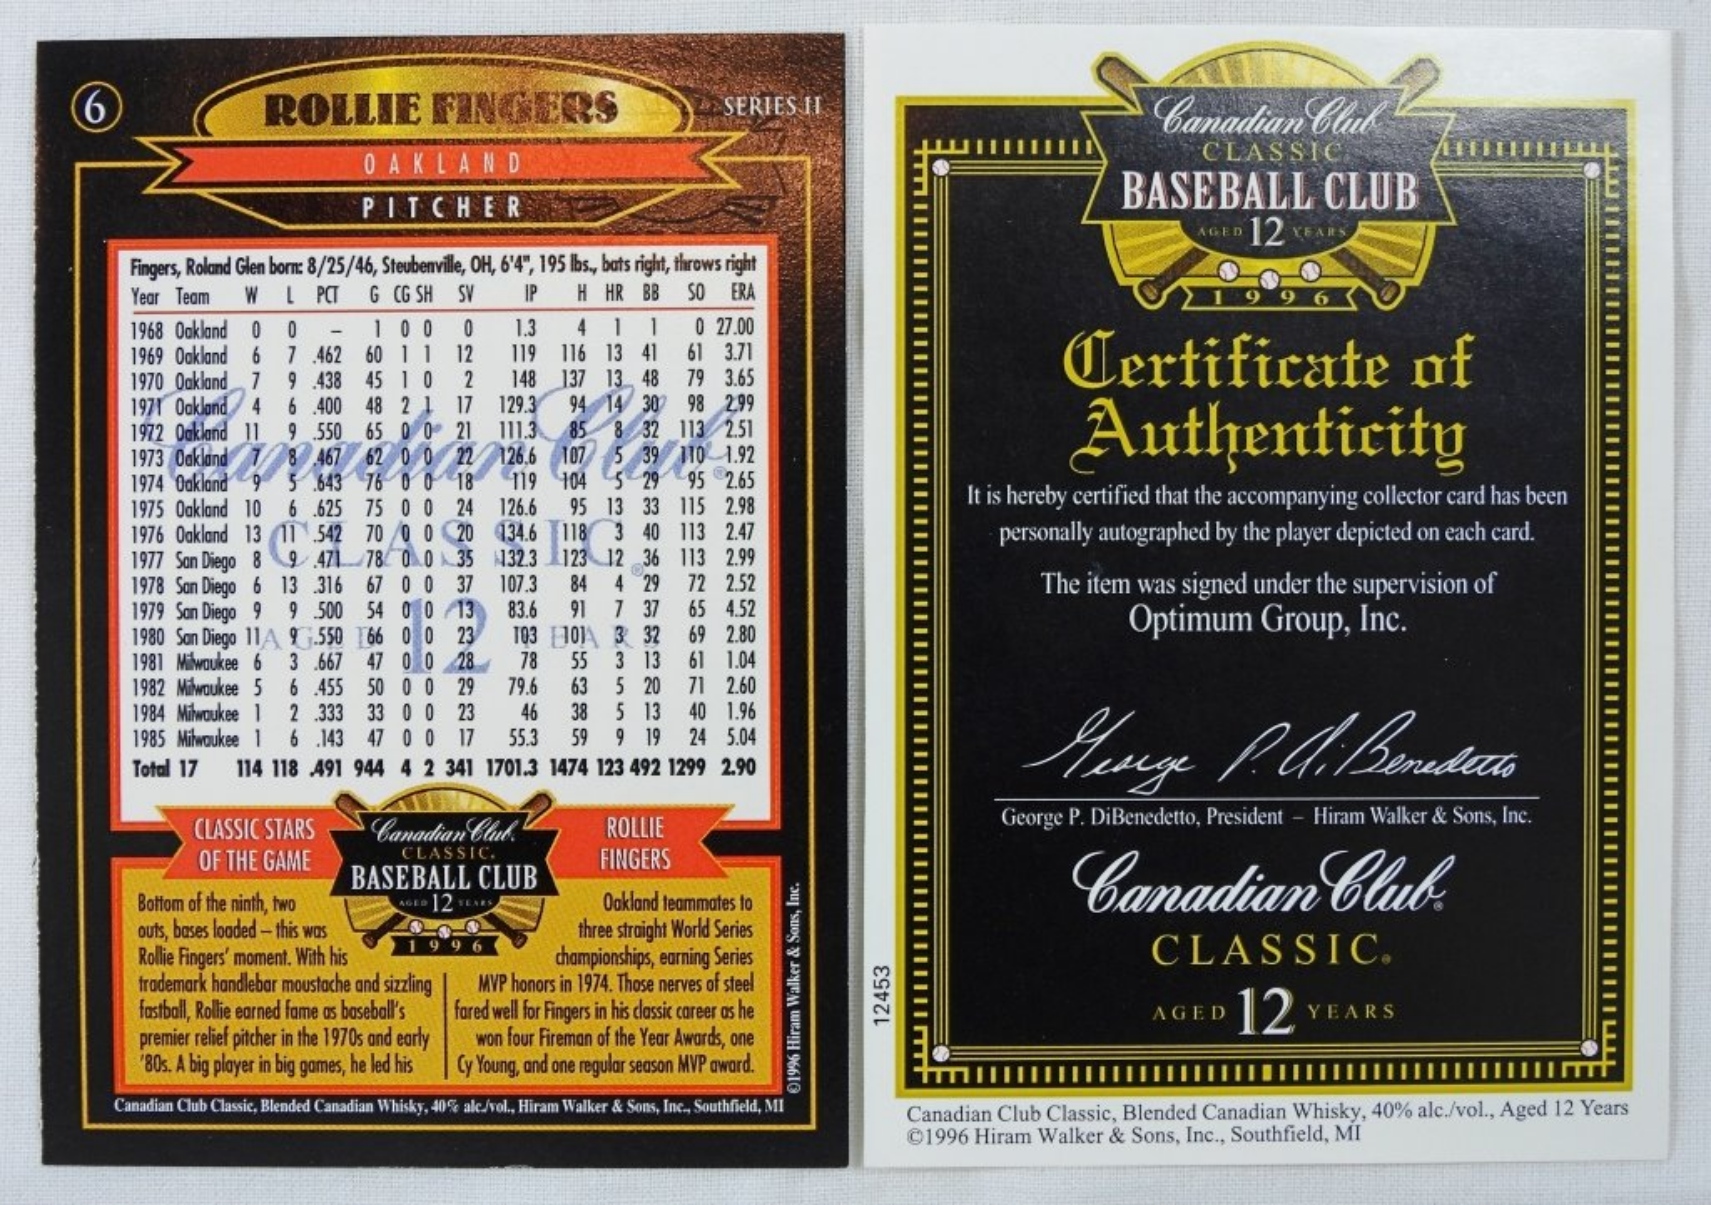 6
ROLLIE FINGERS
SERIES II
OAKLAND
PITCHER
Fingers, Roland Glen born: 8/25/46, Steubenville, OH, 6'4", 195 lbs., bats right, throws right
Year Team W L PCT G CG SH SV IP H HR BB SO ERA
1968 Oakland 0 0 – 1 0 0 0 1.3 4 1 1 0 27.00
1969 Oakland 6 7 .462 60 1 1 12 119 116 13 41 61 3.71
1970 Oakland 7 9 .438 45 1 0 2 148 137 13 48 79 3.65
1971 Oakland 4 6 .400 48 2 1 17 129.3 94 14 30 98 2.99
1972 Oakland 11 9 .550 65 0 0 21 111.3 85 8 32 113 2.51
1973 Oakland 7 8 .467 62 0 0 22 126.6 107 5 39 110 1.92
1974 Oakland 9 5 .643 76 0 0 18 119 104 5 29 95 2.65
1975 Oakland 10 6 .625 75 0 0 24 126.6 95 13 33 115 2.98
1976 Oakland 13 11 .542 70 0 0 20 134.6 118 3 40 113 2.47
1977 San Diego 8 9 .471 78 0 0 35 132.3 123 12 36 113 2.99
1978 San Diego 6 13 .316 67 0 0 37 107.3 84 4 29 72 2.52
1979 San Diego 9 9 .500 54 0 0 13 83.6 91 7 37 65 4.52
1980 San Diego 11 9 .550 66 0 0 23 103 101 3 32 69 2.80
1981 Milwaukee 6 3 .667 47 0 0 28 78 55 3 13 61 1.04
1982 Milwaukee 5 6 .455 50 0 0 29 79.6 63 5 20 71 2.60
1984 Milwaukee 1 2 .333 33 0 0 23 46 38 5 13 40 1.96
1985 Milwaukee 1 6 .143 47 0 0 17 55.3 59 9 19 24 5.04
Total 17 114 118 .491 944 4 2 341 1701.3 1474 123 492 1299 2.90
Canadian Club®
CLASSIC®
AGED 12 YEARS
CLASSIC STARS
OF THE GAME
Canadian Club®
CLASSIC®
BASEBALL CLUB
AGED 12 YEARS
1996
ROLLIE
FINGERS
Bottom of the ninth, two
outs, bases loaded – this was
Rollie Fingers' moment. With his
trademark handlebar moustache and sizzling
fastball, Rollie earned fame as baseball's
premier relief pitcher in the 1970s and early
'80s. A big player in big games, he led his
Oakland teammates to
three straight World Series
championships, earning Series
MVP honors in 1974. Those nerves of steel
fared well for Fingers in his classic career as he
won four Fireman of the Year Awards, one
Cy Young, and one regular season MVP award.
©1996 Hiram Walker & Sons, Inc.
Canadian Club Classic, Blended Canadian Whisky, 40% alc./vol., Hiram Walker & Sons, Inc., Southfield, MI
Canadian Club
CLASSIC
BASEBALL CLUB
AGED 12 YEARS
1996
Certificate of
Authenticity
It is hereby certified that the accompanying collector card has been
personally autographed by the player depicted on each card.
The item was signed under the supervision of
Optimum Group, Inc.
George P. DiBenedetto
George P. DiBenedetto, President – Hiram Walker & Sons, Inc.
Canadian Club®
CLASSIC®
AGED 12 YEARS
12453
Canadian Club Classic, Blended Canadian Whisky, 40% alc./vol., Aged 12 Years
©1996 Hiram Walker & Sons, Inc., Southfield, MI